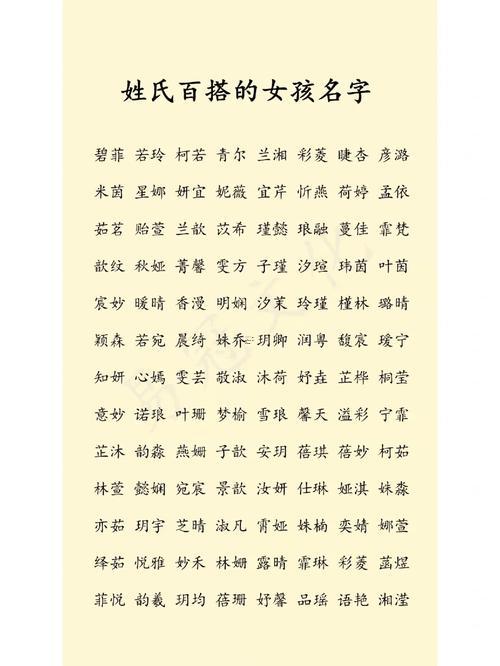 姓氏百搭的女孩名字
碧菲 若玲 柯若 青尔 兰湘 彩菱 睫杏 彦潞
米茵 星娜 妍宜 妮薇 宜芹 忻燕 荷婷 孟依
茹茗 贻萱 兰歆 苡希 瑾懿 琅融 蔓佳 霏梵
歆纹 秋娅 菁馨 雯方 子瑾 汐瑄 玮茵 叶茵
宸妙 暖晴 香漫 明娴 汐茉 玲瑾 槿林 璐晴
颖森 若宛 晨绮 姝乔 玥卿 润粤 馥宸 瑷宁
知妍 心嫣 雯芸 敬淑 沐荷 妤垚 芷桦 桐莹
意妙 诺琅 叶珊 梦榆 雪琅 馨天 溢彩 宁霏
芷沐 韵淼 燕姗 子歆 安玥 蓓琪 蓓妙 柯茹
林萱 懿娴 宛宸 景歆 汝妍 仕琳 娅淇 姝淼
亦茹 玥宇 芝晴 淑凡 霄娅 姝楠 奕婧 娜萱
绎茹 悦雅 妙禾 林姗 露晴 霏琳 彩菱 菡煜
菲悦 韵羲 玥均 蓓珊 妤馨 品瑶 语艳 湘滢
易冠文化